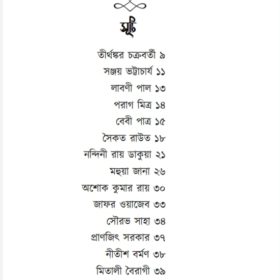 সূচি
তীর্থঙ্কর চক্রবর্তী ৯
সঞ্জয় ভট্টাচার্য ১১
লাবণী পাল ১৩
পরাগ মিত্র ১৪
বেবী পাত্র ১৫
সৈকত রাউত ১৮
নন্দিনী রায় ডাকুয়া ২১
মহুয়া জানা ২৬
অশোক কুমার রায় ৩০
জাফর ওয়াজেব ৩৩
সৌরভ সাহা ৩৪
প্রাণজিৎ সরকার ৩৭
নীতীশ বর্মণ ৩৮
মিতালী বৈরাগী ৩৯